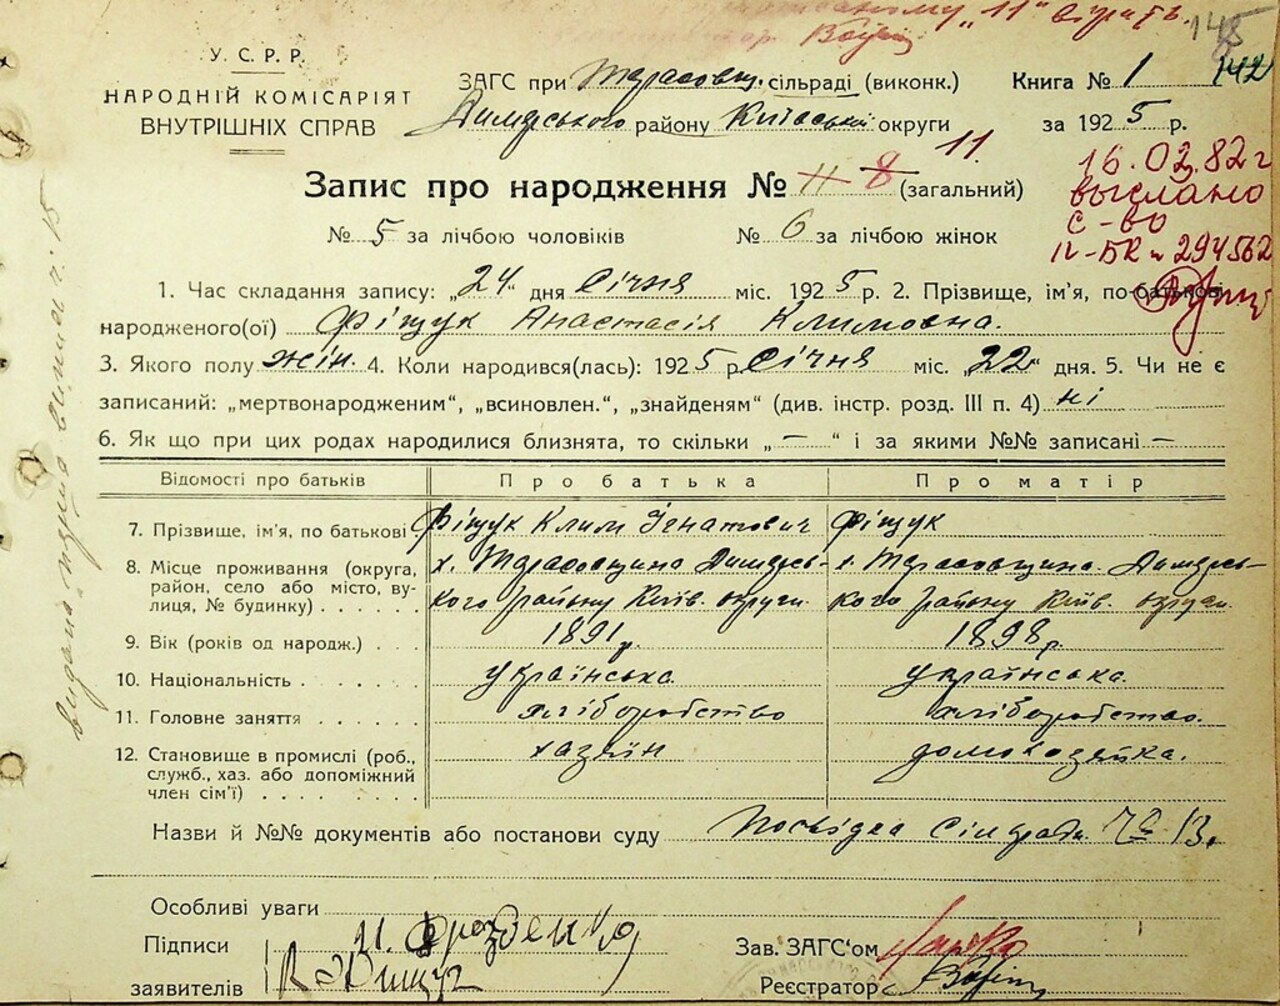 "11" 
145
142
У. С. Р. Р.
НАРОДНІЙ КОМІСАРІЯТ
ВНУТРІШНІХ СПРАВ
ЗАГС при Тарасовщ. сільраді (виконк.)
Димерського району Київської округи
Книга № 1
за 1925 р.
11.
Запис про народження № 11 8 (загальний)
№ 5 за лічбою чоловіків № 6 за лічбою жінок
16.02.82 г
выслано
с-во
II-БК № 294562
1. Час складання запису: „24" дня Січня міс. 1925 р. 2. Прізвище, ім'я, по-батькові
народженого(ої) Фіщук Анастасія Климовна.
3. Якого полу жін. 4. Коли народився(лась): 1925 р. Січня міс. „22" дня. 5. Чи не є
записаний: „мертвонародженим", „всиновлен.", „знайденям" (див. інстр. розд. III п. 4) ні
6. Як що при цих родах народилися близнята, то скільки „ — " і за якими №№ записані —
Відомості про батьків Про батька Про матір
7. Прізвище, ім'я, по батькові Фіщук Клим Ігнатович Фіщук
8. Місце проживання (округа, район, село або місто, вулиця, № будинку) . . . . . .
х. Тарасовщина Димерського району Київ. округи
х. Тарасовщина Димерського району Київ. округи
9. Вік (років од народж.) . . . 1891 р. 1898 р.
10. Національність . . . . . . українська українська.
11. Головне заняття . . . . . . хліборобство хліборобство.
12. Становище в промислі (роб., служб., хаз. або допоміжний член сім'ї) . . . . . . . .
хазяїн домохазяйка.
Назви й №№ документів або постанови суду Посвідка Сільради № 13.
Особливі уваги
Підписи
заявителів
Зав. ЗАГС'ом
Реєстратор